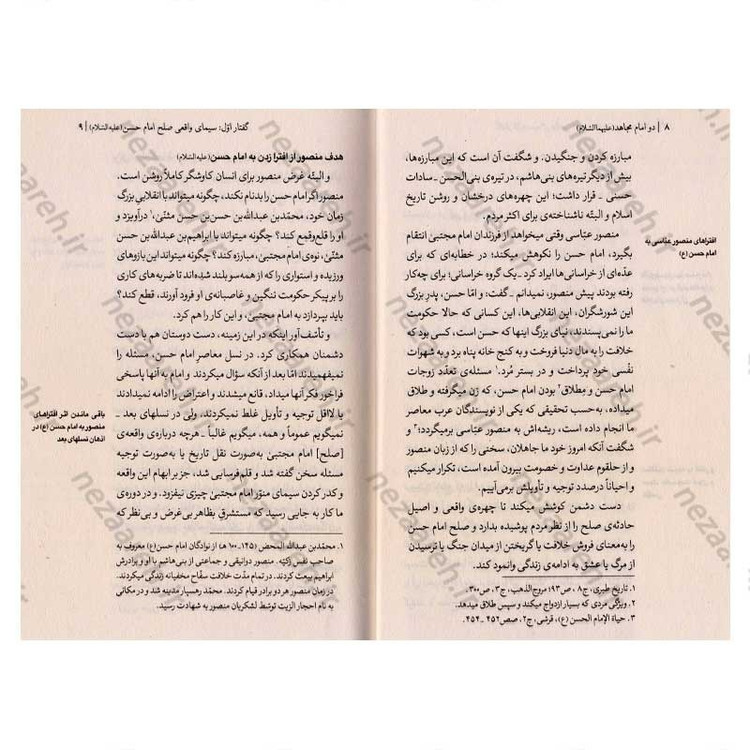 ۸ | دو امام مجاهد (علیهما‌السّلام)
مبارزه کردن و جنگیدن. و شگفت آن است که این مبارزه‌ها،
بیش از دیگر تیره‌های بنی‌هاشم، در تیره‌ی بنی‌الحسن ـ سادات
حسنی ـ قرار داشت؛ این چهره‌های درخشان و روشن تاریخ
اسلام و البتّه ناشناخته‌ی برای اکثر مردم.
افتراهای منصور عبّاسی به
امام حسن (ع)
منصور عبّاسی وقتی میخواهد از فرزندان امام مجتبیٰ انتقام
بگیرد، امام حسن را نکوهش میکند؛ در خطابه‌ای که برای
عدّه‌ای از خراسانی‌ها ایراد کرد ـ یک گروه خراسانی؛ برای چه‌کار
رفته بودند پیش منصور، نمیدانم ـ گفت: و امّا حسن، پدرِ بزرگ
این شورشگران، این انقلابی‌ها، این کسانی که حالا حکومت
ما را نمی‌پسندند، نیای بزرگ اینها که حسن است، کسی بود که
خلافت را به مال دنیا فروخت و به کنج خانه پناه برد و به شهوات
نفْسی خود پرداخت و در بستر مُرد.۱ مسئله‌ی تعدّد زوجات
امام حسن و مِطلاق۲ بودن امام حسن، که زن میگرفته و طلاق
میداده، به‌حسب تحقیقی که یکی از نویسندگان عرب معاصر
ما انجام داده است، ریشه‌اش به منصور عبّاسی برمیگردد؛۳ و
شگفت آنکه امروز خود ما جاهلان، سخنی را که از زبان منصور
و از حلقوم عداوت و خصومت بیرون آمده است، تکرار میکنیم
و احیاناً درصدد توجیه و تأویلش برمی‌آییم.
دست دشمن کوشش میکند تا چهره‌ی واقعی و اصیل
حادثه‌ی صلح را از نظر مردم پوشیده بدارد و صلح امام حسن
را به‌معنای فروش خلافت یا گریختن از میدان جنگ یا ترسیدن
از مرگ یا عشق به ادامه‌ی زندگی وانمود کند.
۱. تاریخ طبری، ج۸، ص۹۳؛ مروج‌الذهب، ج۳، ص۳۰۰.
۲. ویژگی مردی که بسیار ازدواج میکند و سپس طلاق میدهد.
۳. حیاة الإمام الحسن (ع)، قرشی، ج۲، صص۴۵۲ ـ ۴۵۴.
گفتار اوّل: سیمای واقعی صلح امام حسن (علیه‌السّلام) | ۹
هدف منصور از افترا زدن به امام حسن (علیه‌السّلام)
و البتّه غرض منصور برای انسان کاوشگر کاملاً روشن است.
منصور اگر امام حسن را بدنام نکند، چگونه میتواند با انقلابیِ بزرگ
زمان خود، محمّدبن عبدالله‌بن حسن‌بن حسن مثنّیٰ،۱ درآویزد و
او را قلع‌وقمع کند؟ چگونه میتواند با ابراهیم‌بن عبدالله‌بن حسن
مثنّیٰ، نوه‌ی امام مجتبیٰ، مبارزه کند؟ چگونه میتواند این بازوهای
ورزیده و استواری را که از همه‌سو بلند شده‌اند تا ضربه‌های کاری
را بر پیکر حکومت ننگین و غاصبانه‌ی او فرود آورند، قطع کند؟
باید بپردازد به امام مجتبیٰ، و این کار را هم کرد.
باقی ماندن اثر افتراهای
منصور به امام حسن (ع) در
اذهان نسلهای بعد
و تأسّف‌آور اینکه در این زمینه، دست دوستان هم با دست
دشمنان همکاری کرد. در نسل معاصرِ امام حسن، مسئله را
نمیفهمیدند امّا بعد از آنکه سؤال میکردند و امام به آنها پاسخی
فراخور فکر آنها میداد، قانع میشدند و اعتراض را ادامه نمیدادند
یا لااقل توجیه و تأویل غلط نمیکردند، ولی در نسلهای بعد ـ
نمیگویم عموماً و همه، میگویم غالباً ـ هرچه درباره‌ی واقعه‌ی
[صلح] امام مجتبیٰ به‌صورت نقل تاریخ یا به‌صورت توجیه
مسئله سخن گفته شد و قلم‌فرسایی شد، جز بر ابهام این واقعه
و کدر کردن سیمای منوّر امام مجتبیٰ چیزی نیفزود. و در دوره‌ی
ما کار به جایی رسید که مستشرقِ بظاهر بی‌غرض و بی‌نظر که
۱. محمّدبن عبدالله المحض (۱۴۵ـ۱۰۰ ه) از نوادگان امام حسن (ع) معروف به
صاحب نفس زکیّه. منصور دوانیقی و جماعتی از بنی‌هاشم با او و برادرش
ابراهیم بیعت کردند. در تمام مدّت خلافت سفّاح مخفیانه زندگی میکردند.
در زمان منصور هر دو برادر قیام کردند. محمّد رهسپار مدینه شد و در مکانی
به نام احجار الزیت توسّط لشکریان منصور به شهادت رسید.
nezaareh.ir